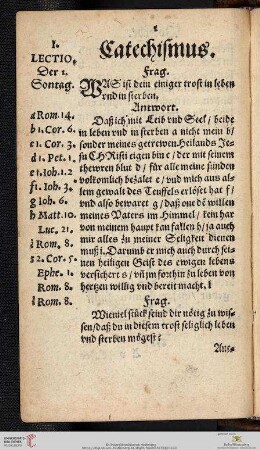 1.
LECTIO.
Der 1.
Sontag.
a Rom. 14.
b 1. Cor. 6.
c 1. Cor. 3.
d 1. Pet. 1.
e 1. Joh. 1. 2
f 1. Joh. 3.
g Joh. 6.
h Matt. 10.
Luc. 21.
i Rom. 8.
2. Cor. 5.
Ephe. 1.
Rom. 8.
l Rom. 8.
Catechismus.
Frag.
WAS ist dein einiger trost in leben
vnd in sterben.
Antwort.
Daß ich mit Leib vnd Seel / beide
in leben vnd in sterben a nicht mein b /
sonder meines getrewen Heilands Je-
su CHRisti eigen bin c / der mit seinem
thewren blut d / für alle meine sünden
volkomlich bezalet e / vnd mich aus al-
lem gewalt des Teuffels erlöset hat f /
vnd also bewaret g / daß one dē willen
meines Vaters im Himmel / kein har
von meinem haupt kan fallen h / ja auch
mir alles zu meiner Seligkeit dienen
muß i. Darumb er mich auch durch sei-
nen heiligen Geist des ewigen lebens
versichert / vn̄ jm forthin zu leben von
hertzen willig vnd bereit macht. l
Frag.
Wieuiel stück seind dir nötig zu wis-
sen / daß du in diesem trost seliglich leben
vnd sterben mögest?
Ant-